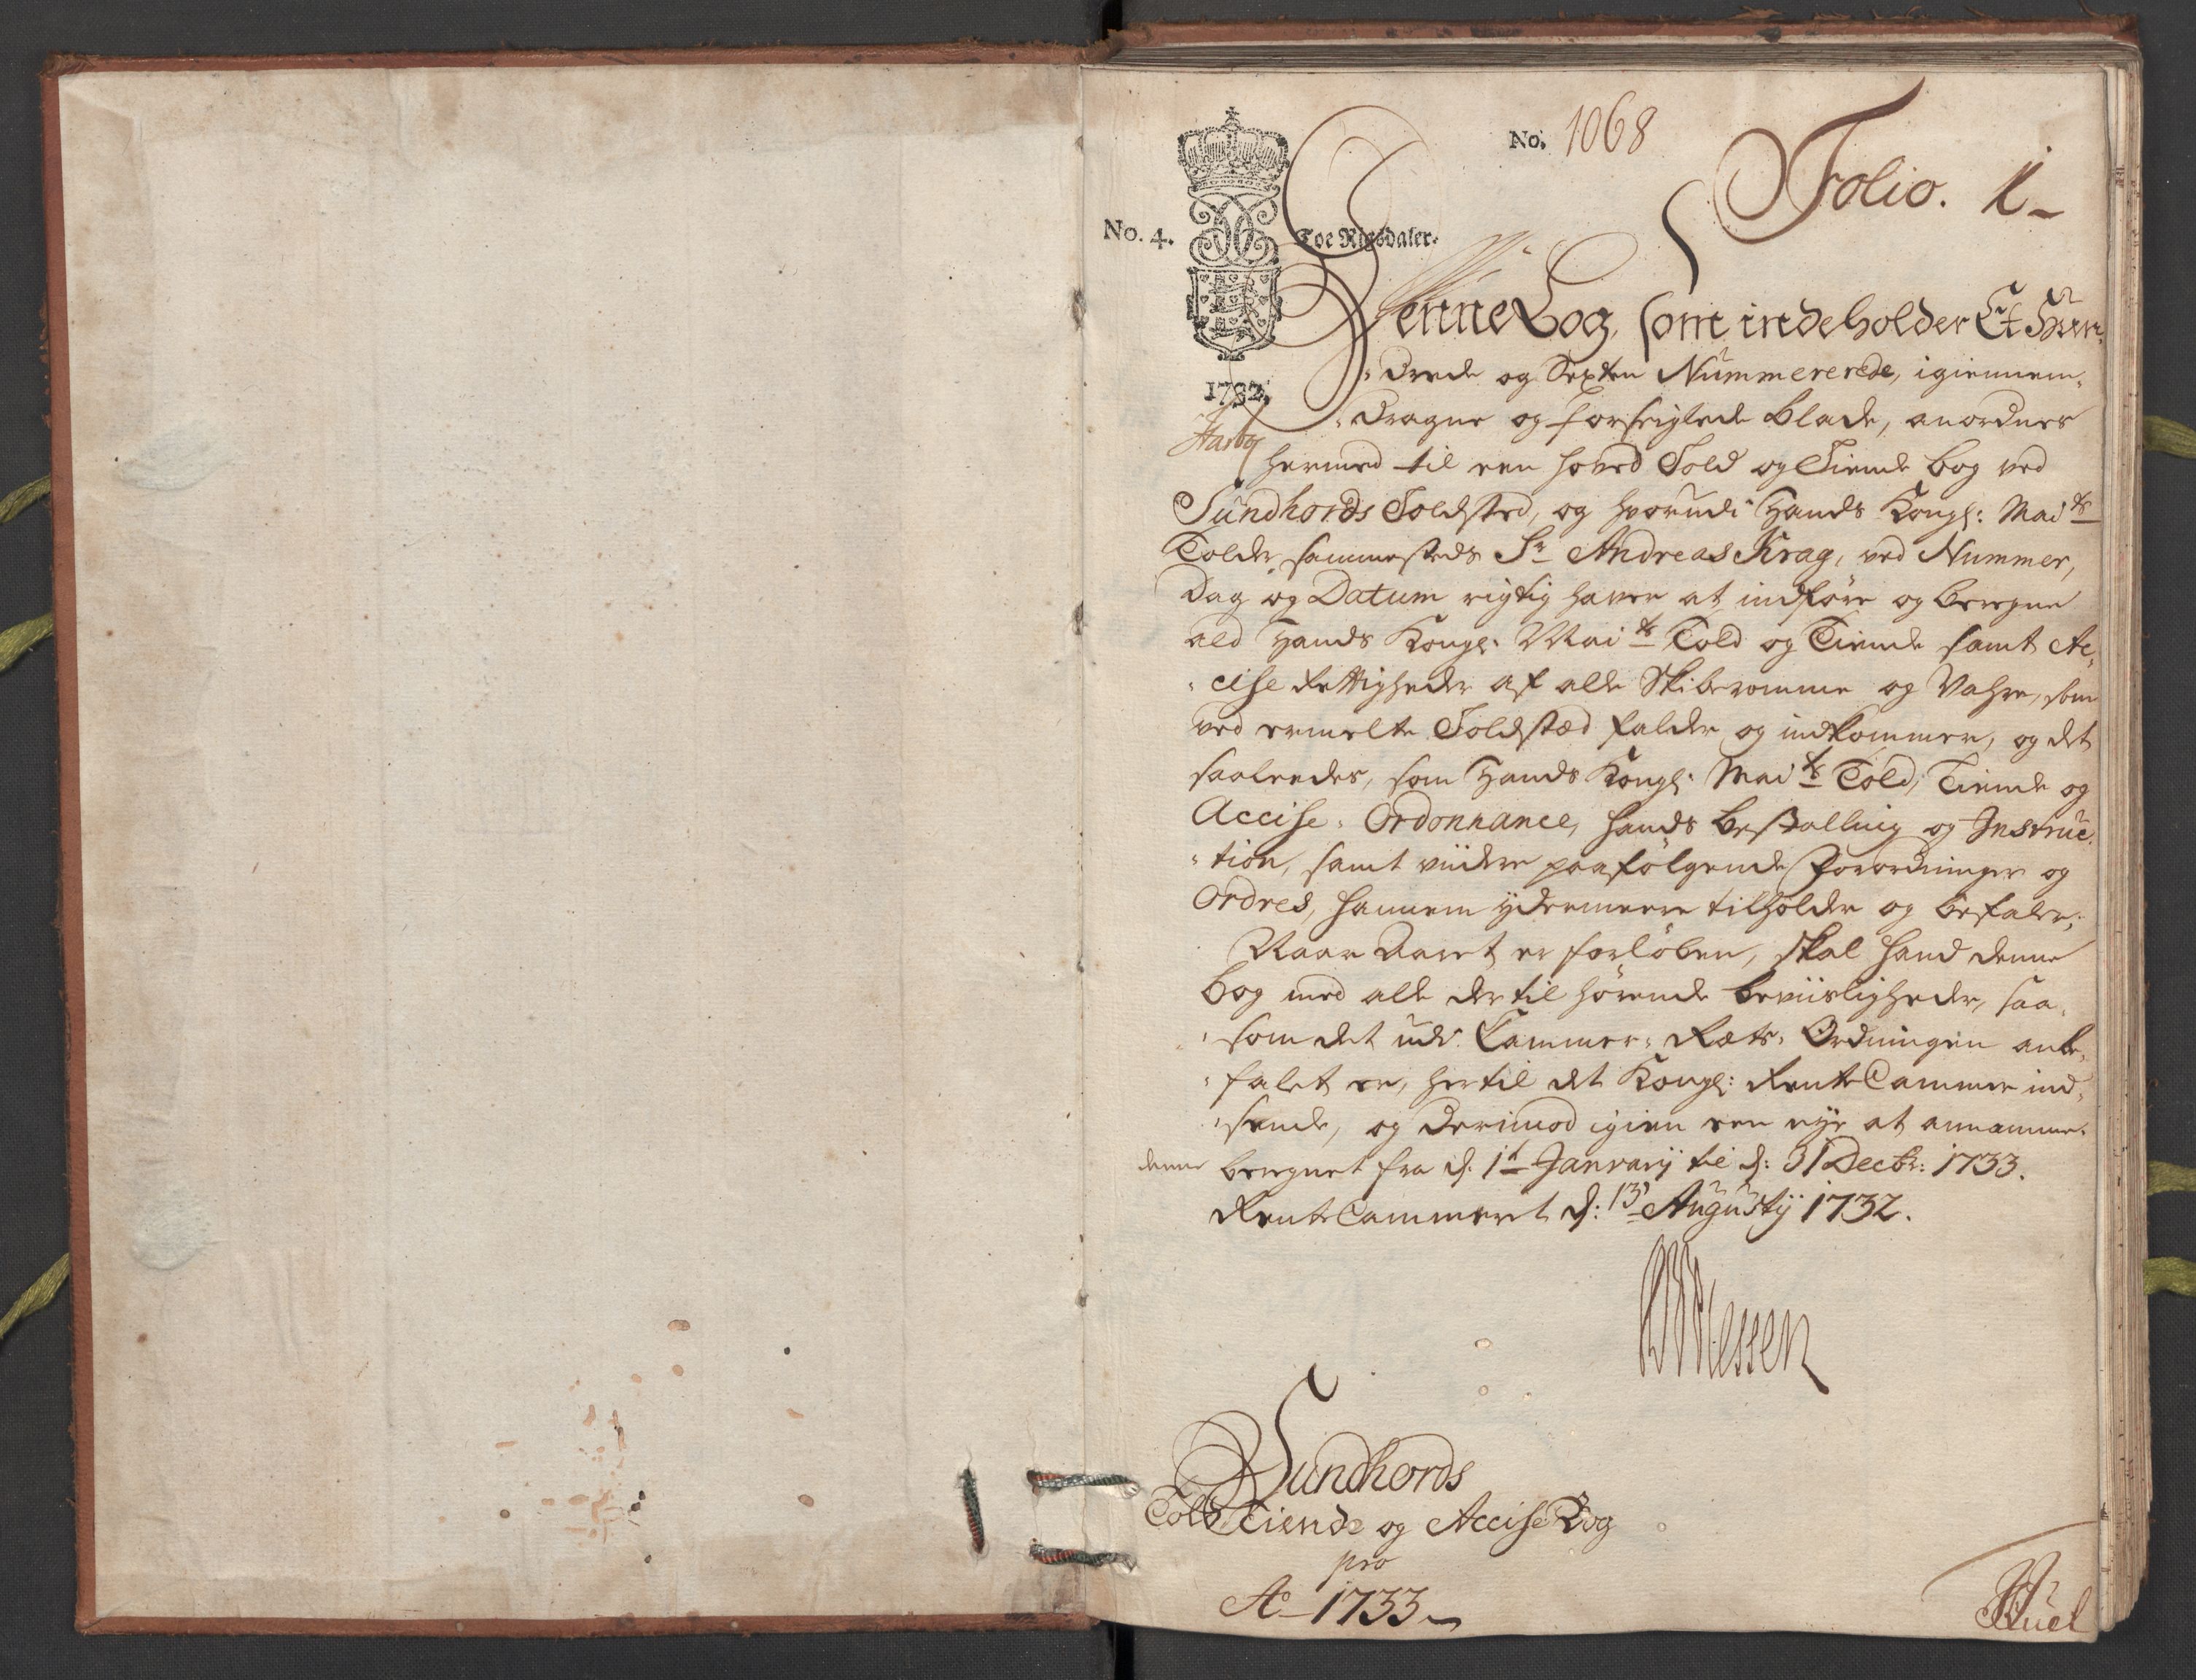 No. 1068
Folio. 1
No. 4.
Toe Rigsdaler.
1732.
Denne Bog, som indeholder Et Hun-
drede og Sexten Nummererede, igiennem-
dragne og forseiglede Blade, anordnes
hermed til een Hoved Told og Tiende bog ved
Sundhords Toldsted, og hvorudi Hands Kongl: Maits
Tolder sammesteds Sr Andreas Krag, ved Nummer,
Dag og Datum rigtig haver at indføre og beregne
ald Hands Kongl. Maits Told og Tiende samt Ac-
cise Rettigheder af alle Skibsromme og Vahre, som
ved ermelte Toldstæd falder og indkommer, og det
saaledes, som Hands Kongl. Maits Told, Tiende og
Accise-Ordonnance, hands Bestalling og Instruc-
tion, samt viidere paafølgende Forordninger og
Ordres, hannem ydermeere tilholder og befaler;
Naar Aaret er forløben, skal hand denne
Bog med alle der til hørende beviisligheder, saa-
som det udi Cammer-Ræts-Ordningen anbe-
falet er, her til det Kongl: Rente Cammer ind-
sende, og derimod igien een nye at annamme,
denne beregnet fra d. 1t Januarij til d: 31 Decbr: 1733.
Rente Cammeret d: 13 Augustij 1732.
Sundhords
Told Tiende og Accise Bog
pro
Ao 1733